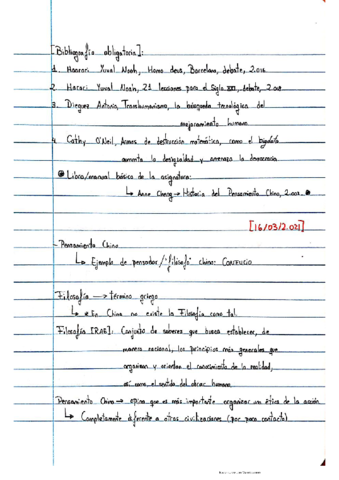 [Bibliografía obligatoria]:
1. Harari Yuval Noah, Homo deus, Barcelona, debate, 2.016
2. Harari Yuval Noah, 21 lecciones para el Siglo XXI, debate, 2.018
3. Dieguez Antonio, Transhumanismo, la búsqueda tecnológica del
mejoramiento humano
4. Cathy O'Neil, Armas de destrucción matemática, como el bigdata
aumenta la desigualdad y amenaza la democracia
Libro/manual básico de la asignatura:
↳ Anne Cheng → Historia del Pensamiento Chino, 2.002
[16/03/2.021]
- Pensamiento Chino
↳ Ejemplo de pensador/"filósofo" chino: CONFUCIO.
Filosofía → término griego
↳ En China no existe la Filosofía como tal.
Filosofía [RAE]: Conjunto de saberes que busca establecer, de
manera racional, los principios más generales que
organizan y orientan el conocimiento de la realidad,
así como el sentido del obrar humano.
Pensamiento Chino → opina que es más importante organizar un ética de la acción
↳ Completamente diferente a otras civilizaciones (por poco contacto)